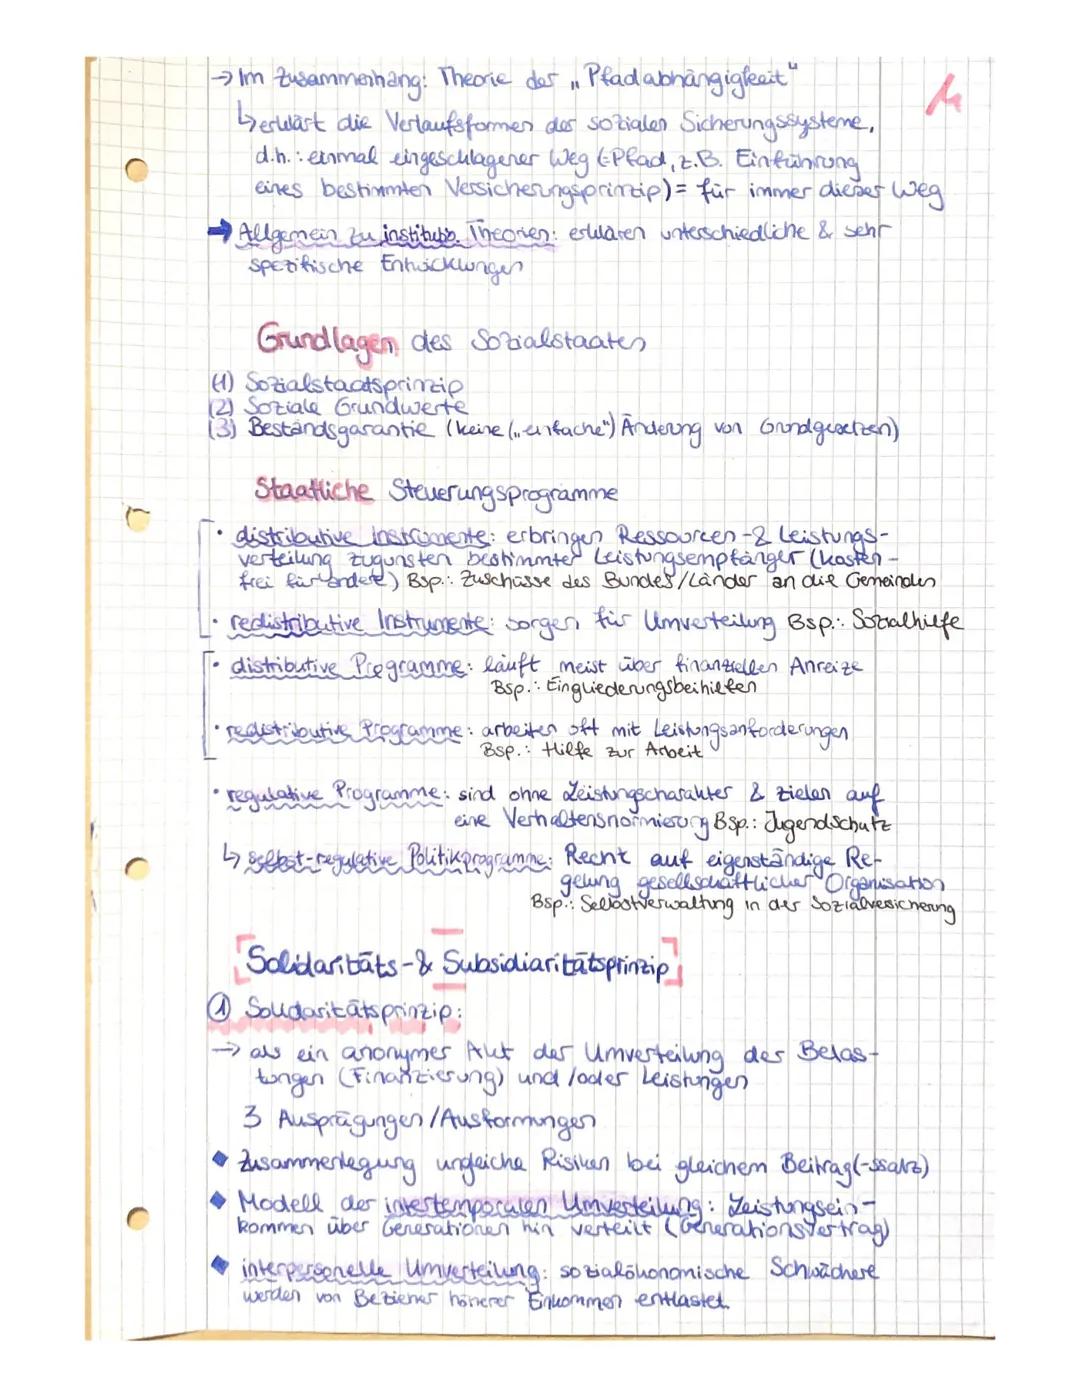 → Im Zusammenhang: Theorie der „Pfadabhängigkeit"
↳ erklärt die Verlaufsformen der sozialen Sicherungssysteme,
d.h.: einmal eingeschlagener Weg (=Pfad, z.B. Einführung
eines bestimmten Versicherungsprinzip) = für immer dieser Weg
→ Allgemein zu institutio. Theorien: erklären unterschiedliche & sehr
spezifische Entwicklungen
Grundlagen des Sozialstaates
(1) Sozialstaatsprinzip
(2) Soziale Grundwerte
(3) Bestandsgarantie (keine („einfache") Änderung von Grundgesetzen)
Staatliche Steuerungsprogramme
• distributive Instrumente: erbringen Ressourcen-& Leistungs-
verteilung zugunsten bestimmter Leistungsempfänger (kosten-
frei für andere) Bsp.: Zuschüsse des Bundes/Länder an die Gemeinden
• redistributive Instrumente: sorgen für Umverteilung Bsp.: Sozialhilfe
• distributive Programme: läuft meist über finanziellen Anreize
Bsp.: Eingliederungsbeihilfen
• redistributive Programme: arbeiten oft mit Leistungsanforderungen
Bsp.: Hilfe zur Arbeit
• regulative Programme: sind ohne Leistungscharakter & zielen auf
eine Verhaltensnormierung Bsp.: Jugendschutz
↳ selbst-regulative Politikprogramme: Recht auf eigenständige Re-
gelung gesellschaftlicher Organisation
Bsp.: Selbstverwaltung in der Sozialversicherung
Solidaritäts-& Subsidiaritätsprinzip
① Solidaritätsprinzip:
→ als ein anonymer Akt der Umverteilung der Belas-
tungen (Finanzierung) und/oder Leistungen
3 Ausprägungen/Ausformungen
◆ Zusammenlegung ungleiche Risiken bei gleichem Beitrag(-ssatz)
◆ Modell der intertemporalen Umverteilung: Leistungsein-
kommen über Generationen hin verteilt (Generationsvertrag)
◆ interpersonelle Umverteilung: sozialökonomische Schwächere
werden von Bezieher höherer Einkommen entlastet.